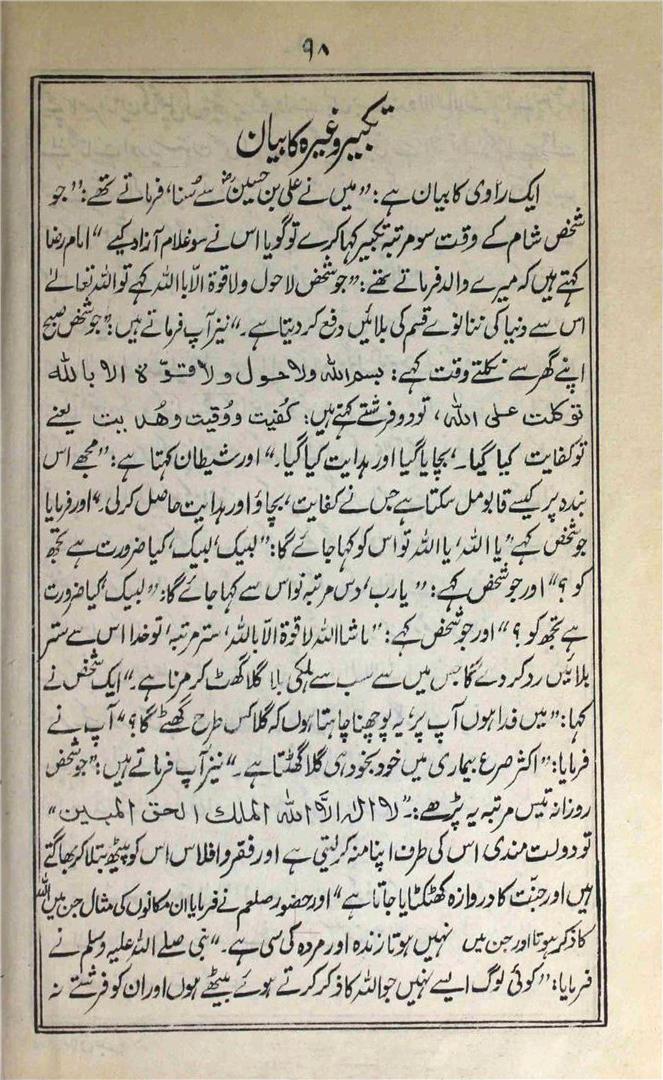 ۹۸
تکبیر وغیرہ کا بیان
ایک راوی کا بیان ہے: ”میں نے علی بن حسینؓ سے سُنا، فرماتے تھے: ”جو
شخص شام کے وقت سو مرتبہ تکبیر کہا کرے تو گویا اس نے سو غلام آزاد کیے“ امام رضا
کہتے ہیں کہ میرے والد فرماتے تھے: ”جو شخص لاحول ولا قوۃ الّا باللہ کہے تو اللہ تعالےٰ
اس سے دنیا کی ننانوے قسم کی بلائیں دفع کر دیتا ہے۔“ نیز آپ فرماتے ہیں: ”جو شخص صبح
اپنے گھر سے نکلتے وقت کہے: بسم اللہ ولا حول ولا قوّۃ الا باللہ
توکلت علی اللہ، تو دو فرشتے کہتے ہیں: کفیت ووقیت وھد یت یعنے
تو کفایت کیا گیا۔ ’بچایا گیا اور ہدایت کیا گیا۔“ اور شیطان کہتا ہے: ”مجھے اس
بندہ پر کیسے قابو مل سکتا ہے جس نے کفایت، بچاؤ اور ہدایت حاصل کرلی۔“ اور فرمایا
جو شخص کہے ”یا اللہ، یا اللہ تو اس کو کہا جائے گا: ”لبیک، لبیک، کیا ضرورت ہے تجھ
کو؟“ اور جو شخص کہے: ”یا رب، دس مرتبہ تو اس سے کہا جائے گا: ”لبیک، کیا ضرورت
ہے تجھ کو؟“ اور جو شخص کہے: ”ماشااللہ لا قوۃ الّا باللہ، ستر مرتبہ، تو خدا اس سے ستر
بلائیں رد کر دے گا جس میں سے سب سے ہلکی بلا گلا گھٹ کر مرنا ہے۔“ ایک شخص نے
کہا: ”میں فدا ہوں آپ پر، یہ پوچھنا چاہتا ہوں کہ گلا کس طرح گھٹے گا؟“ آپ نے
فرمایا: ”اکثر صرع بیماری میں خود بخود ہی گلا گھٹتا ہے۔“ نیز آپ فرماتے ہیں: ”جو شخص
روزانہ تیس مرتبہ یہ پڑھے: ”لا الٰہ الاّ اللہ الملک الحق المبین“
تو دولت مندی اس کی طرف اپنا منہ کرلیتی ہے اور فقر و افلاس اس کو پیٹھ بتلا کر بھاگتے
ہیں اور جنّت کا دروازہ کھٹکٹایا جاتا ہے“ اور حضور صلعم نے فرمایا ان مکانوں کی مثال جن میں اللہ
کا ذکر ہوتا اور جن میں نہیں ہوتا زندہ اور مردہ کی سی ہے۔“ نبی صلے اللہ علیہ وسلم نے
فرمایا: ”کوئی لوگ ایسے نہیں جو اللہ کا ذکر کرتے ہوئے بیٹھے ہوں اور ان کو فرشتے نہ